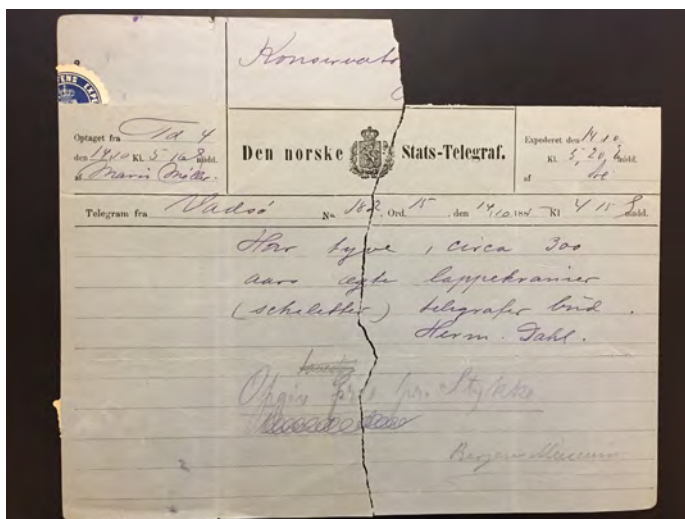 Konservato
TENS EXP
Optaget fra Td 4
den 14.10 Kl. 5 16 E midd.
af Marie Möller.
Den norske Stats-Telegraf.
Expederet den 14.10.
Kl. 5,20, E midd.
af
Telegram fra Vadsö No. 182, Ord. 15, den 14/10 188 Kl 4 15 E midd.
Har tyve, circa 300
aars ægte lappekranier
(scheletter) telegrafer bud.
Herm. Dahl.
Opgiv Pris pr. Stykke
Bergens Museum